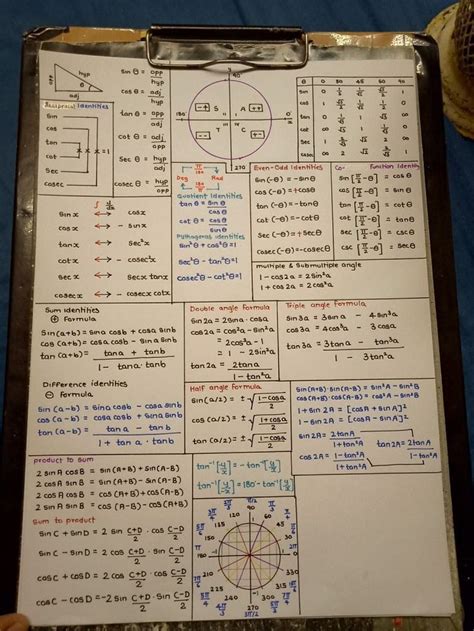 opp
hyp
adj
sin θ = opp/hyp
cos θ = adj/hyp
tan θ = opp/adj
cot θ = adj/opp
sec θ = hyp/adj
cosec θ = hyp/opp
y
90°
180°
0°
x
270
S
A
T
C
θ 0 30 45 60 90
sin 0 1/2 1/√2 √3/2 1
cos 1 √3/2 1/√2 1/2 0
tan
cot
sec
cosec
Reciprocal Identities
sin
cos
tan
cot
sec
cosec
x = 1
sin x ↔ cos x
cos x ↔ - sin x
tan x ↔ sec²x
cot x ↔ - cosec²x
sec x ↔ sec x tan x
cosec x ↔ - cosec x cot x
Deg
Rad
Quotient Identities
tan θ = sin θ/cos θ
cot θ = cos θ/sin θ
Pythagoras Identities
sin²θ + cos²θ = 1
sec²θ - tan²θ = 1
cosec²θ - cot²θ = 1
Even-Odd Identities
sin (-θ) = - sin θ
cos (-θ) = + cos θ
tan (-θ) = - tan θ
cot (-θ) = - cot θ
sec (-θ) = + sec θ
cosec (-θ) = - cosec θ
Co-Function Identity
sin [π/2 - θ] = cos θ
cos [π/2 - θ] = sin θ
tan [π/2 - θ] = cot θ
cot [π/2 - θ] = tan θ
sec [π/2 - θ] = csc θ
csc [π/2 - θ] = sec θ
multiple & Submultiple angle
1 - cos2a = 2sin²a
1 + cos2a = 2cos²a
Sum identities
⊕ Formula
sin(a+b) = sina cosb + cosa sinb
cos (a+b) = cosa cosb - sina sinb
tan (a+b) = tana + tanb / 1 - tana · tanb
Double angle Formula
sin2a = 2sina · cosa
cos2a = cos²a - sin²a
= 2cos²a - 1
= 1 - 2sin²a
tan2a = 2tana / 1 - tan²a
Triple angle Formula
sin3a = 3sina - 4sin³a
cos3a = 4cos³a - 3cosa
tan3a = 3tana - tan³a / 1 - 3tan²a
Difference identities
⊖ Formula
sin (a-b) = sina cosb - cosa sinb
cos (a-b) = cosa cosb + sina sinb
tan (a-b) = tana - tanb / 1 + tana · tanb
Half angle Formula
sin (a/2) = ± √1-cosa/2
cos (a/2) = ± √1+cosa/2
tan (a/2) = ± √1-cosa/1+cosa
sin(A+B)·sin(A-B) = sin²A - sin²B
cos(A+B)·cos(A-B) = cos²A - sin²B
1+ sin 2A = [cosA + sinA]²
1- sin 2A = [cosA - sinA]²
sin2A = 2tanA/1+tan²A
tan2A = 2tanA/1-tan²A
cos2A = 1-tan²A/1+tan²A
product to sum
2 sinA cosB = sin(A+B) + sin(A-B)
2 cosA sinB = sin(A+B) - sin(A-B)
2 cosA cosB = cos(A+B) + cos(A-B)
2 sinA sinB = cos(A-B) - cos(A+B)
tan⁻¹[y/-x] = - tan⁻¹[y/x]
tan⁻¹[y/-x] = 180 - tan⁻¹[y/x]
Sum to product
sin C + sin D = 2 sin C+D/2 · cos C-D/2
sin C - sin D = 2 cos C+D/2 · sin C-D/2
cos C + cos D = 2 cos C+D/2 · cos C-D/2
cos C - cos D = -2 sin C+D/2 · sin C-D/2
π/2
90
60
45
30
120
150
π
210
225
240
270
300
330